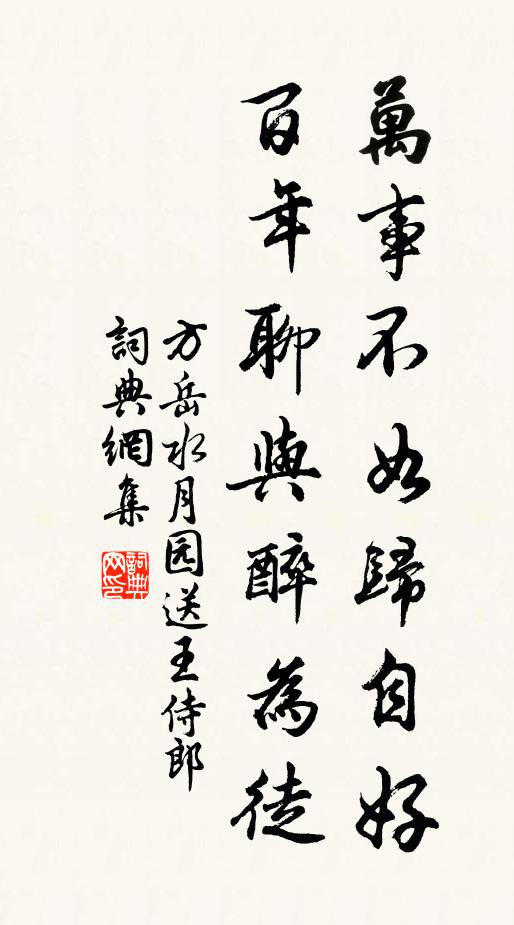 萬事不如歸自好
百年聊與醉為徒
方岳水月园送王侍郎
詞典網集
詞典網印